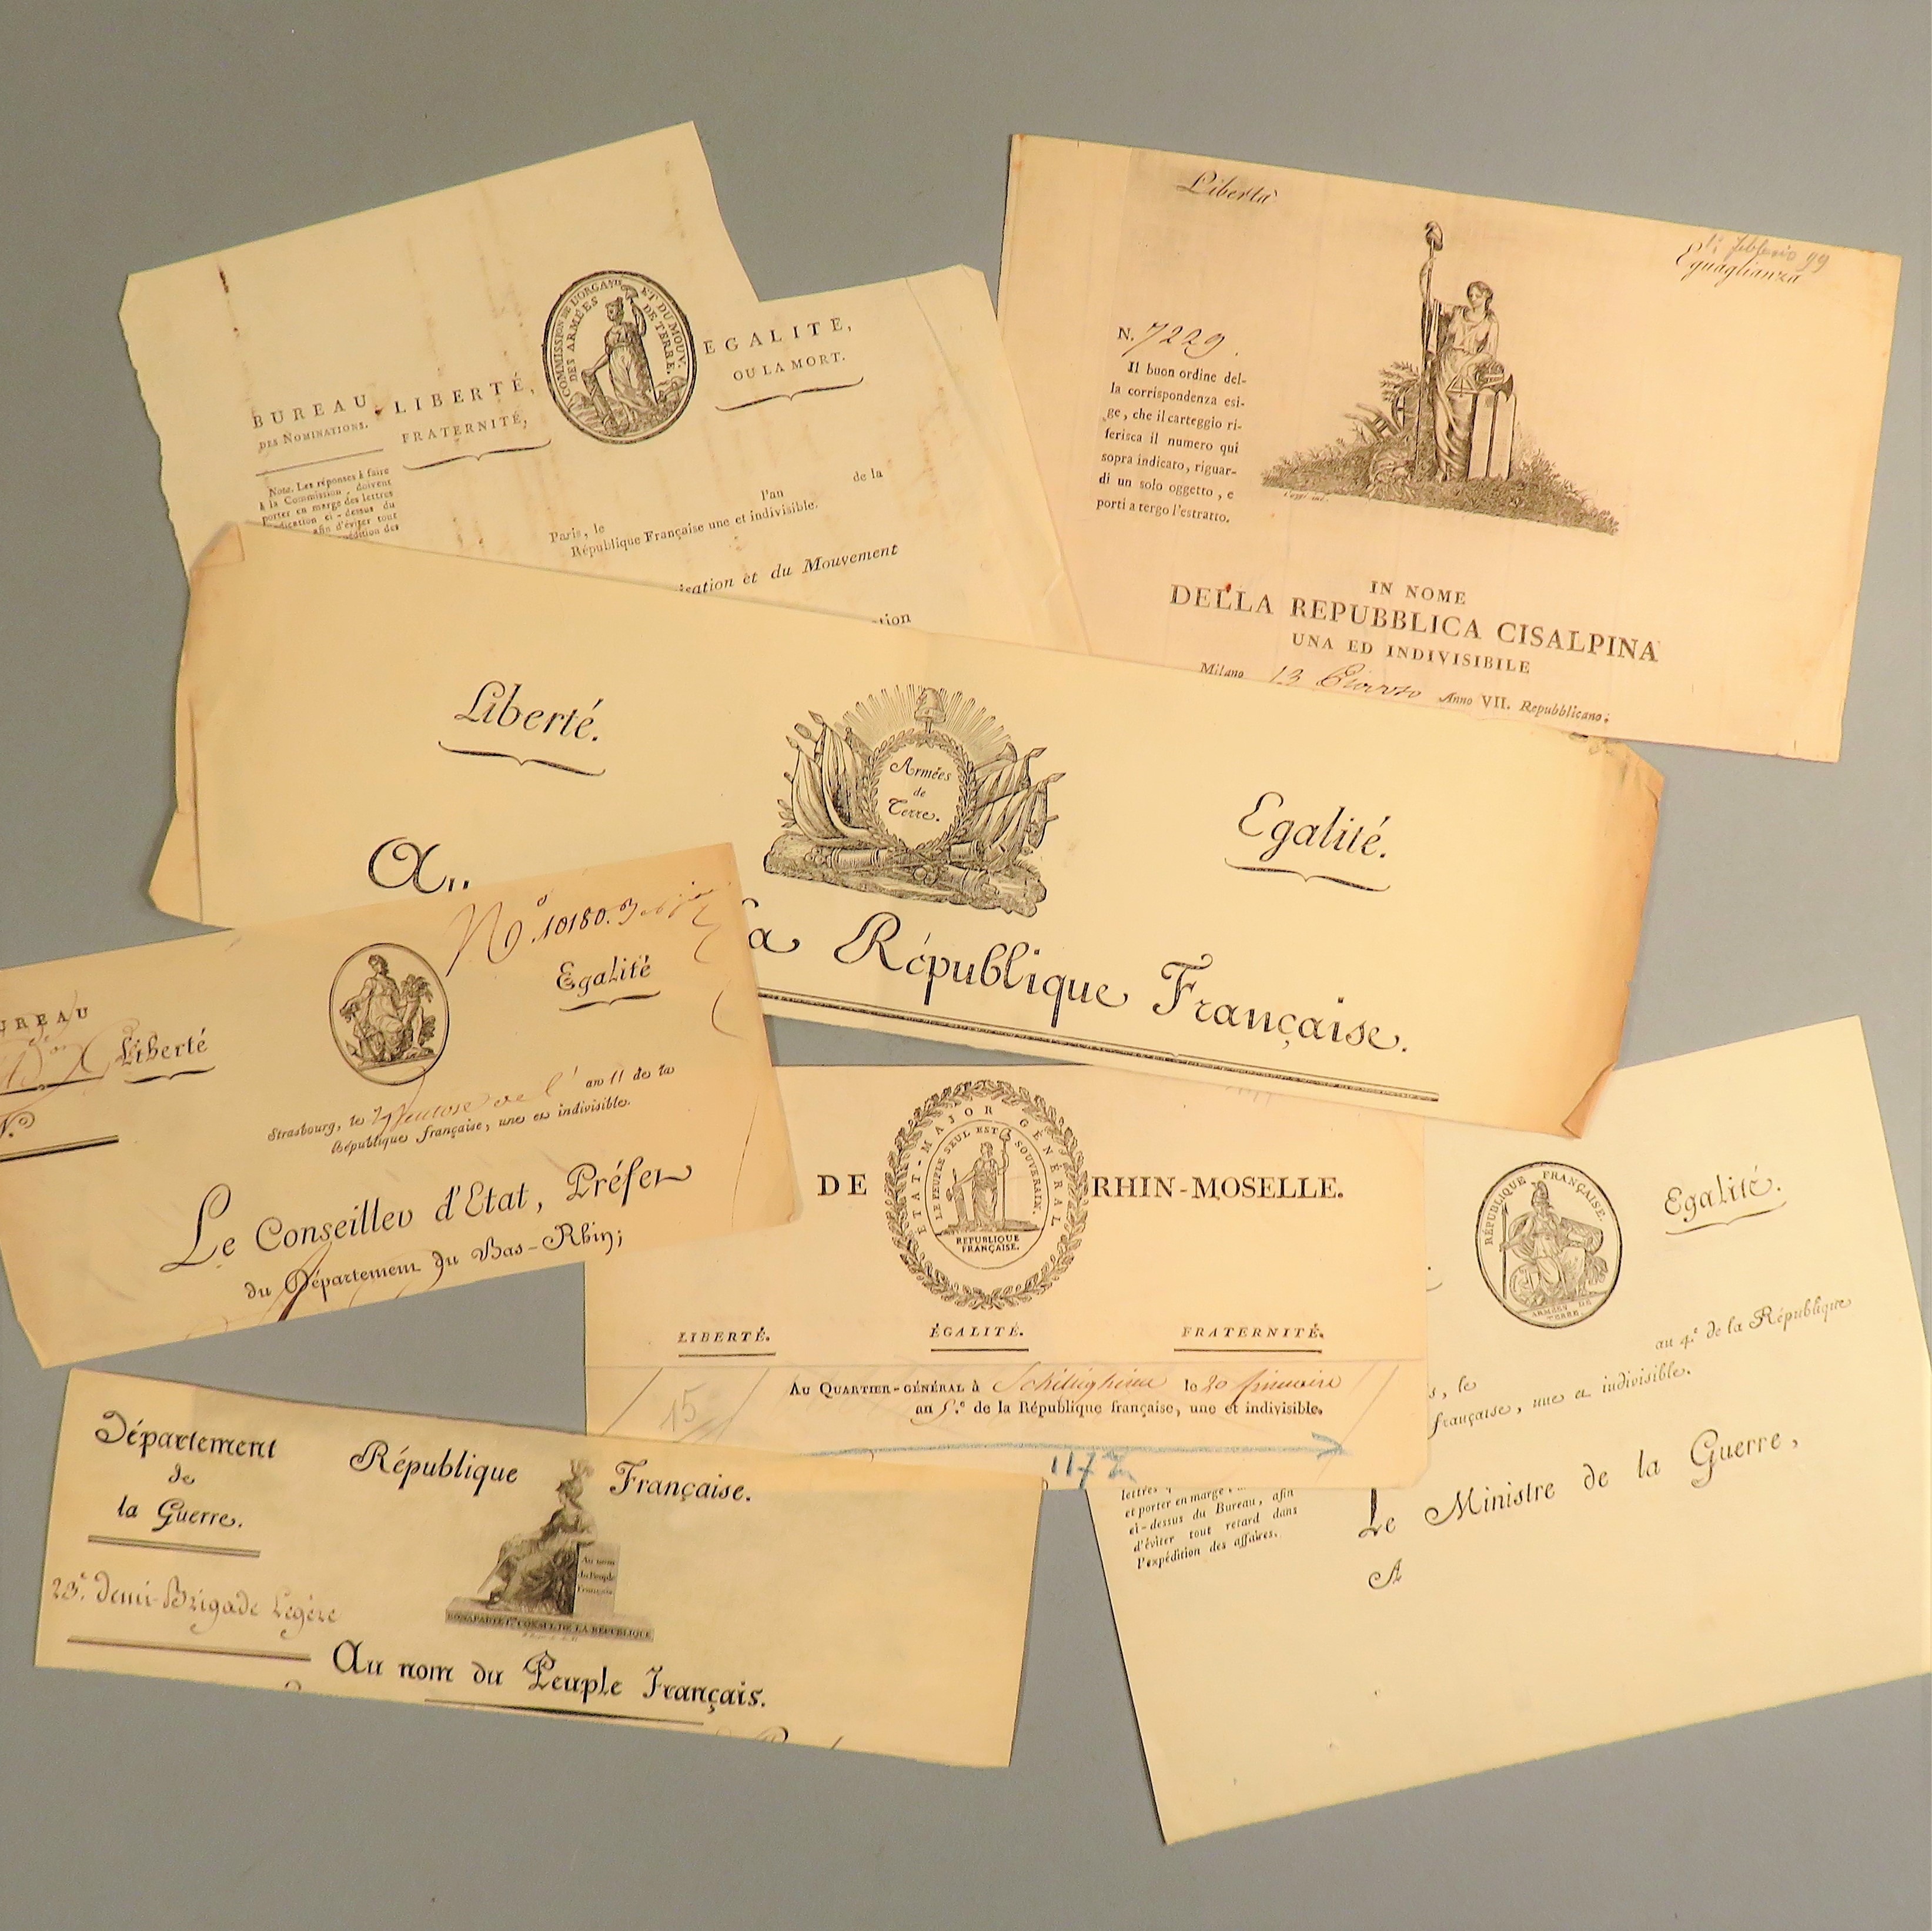 BUREAU
DES NOMINATIONS.
LIBERTÉ,
FRATERNITÉ,
COMMISSION DE L'ORGAN. ET DU MOUV.
DES ARMÉES DE TERRE.
EGALITE,
OU LA MORT.
Note. Les réponses à faire
à la Commission, doivent
porter en marge des lettres
ci-dessus du
afin d'éviter tout
l'an de la
Paris, le
République Française une et indivisible.
et du Mouvement
Libertà
Eguaglianza
N. 7229.
Il buon ordine del-
la corrispondenza esi-
ge, che il carteggio ri-
ferisca il numero qui
sopra indicato, riguar-
di un solo oggetto, e
porti a tergo l'estratto.
IN NOME
DELLA REPUBBLICA CISALPINA
UNA ED INDIVISIBILE
Milano 13 Anno VII. Repubblicano;
Liberté.
Armées
de
Terre.
Egalité.
République Française.
N.º 10180.
Liberté
Egalité
an 11 de la
Strasbourg, le
République française, une et indivisible.
Le Conseiller d'Etat, Préfet
du Département du Bas-Rhin;
DE
ETAT-MAJOR GÉNÉRAL
LE PEUPLE SEUL EST SOUVERAIN.
REPUBLIQUE
FRANÇAISE.
RHIN-MOSELLE.
LIBERTÉ.
ÉGALITÉ.
FRATERNITÉ.
15
AU QUARTIER-GÉNÉRAL à le 20 frimaire
an 5.e de la République française, une et indivisible.
117
RÉPUBLIQUE FRANÇAISE.
ARMÉES DE
TERRE
Egalité.
an 4.e de la République
le
française, une et indivisible.
Le Ministre de la Guerre,
A
lettres
et porter en marge
ci-dessus du Bureau, afin
d'éviter tout retard dans
l'expédition des affaires.
Département
de
la Guerre.
23.e demi-Brigade Legère
République Française.
Au nom
du Peuple
Français.
BONAPARTE 1er CONSUL DE LA RÉPUBLIQUE
Au nom du Peuple Français.